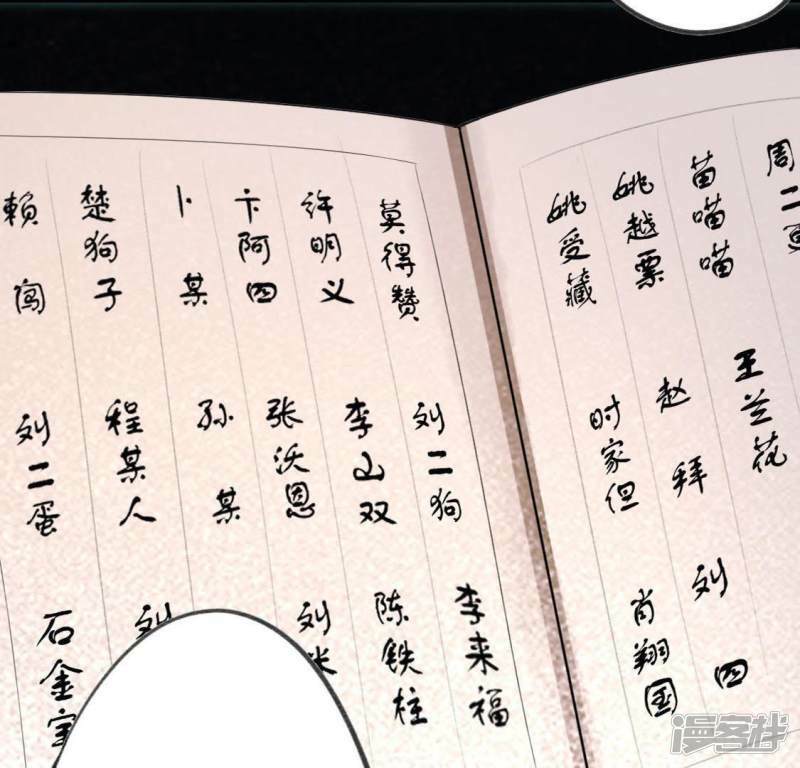 周二更
苗喵喵 王兰花
姚越票 赵拜 刘四
姚受藏 时家但 肖翔国
莫得赞 刘二狗 李来福
许明义 李山双 陈铁柱
卞阿四 张沃恩 刘
卜某 孙某
楚狗子 程某人 刘
賴闯 刘二蛋 石金宝
漫客栈